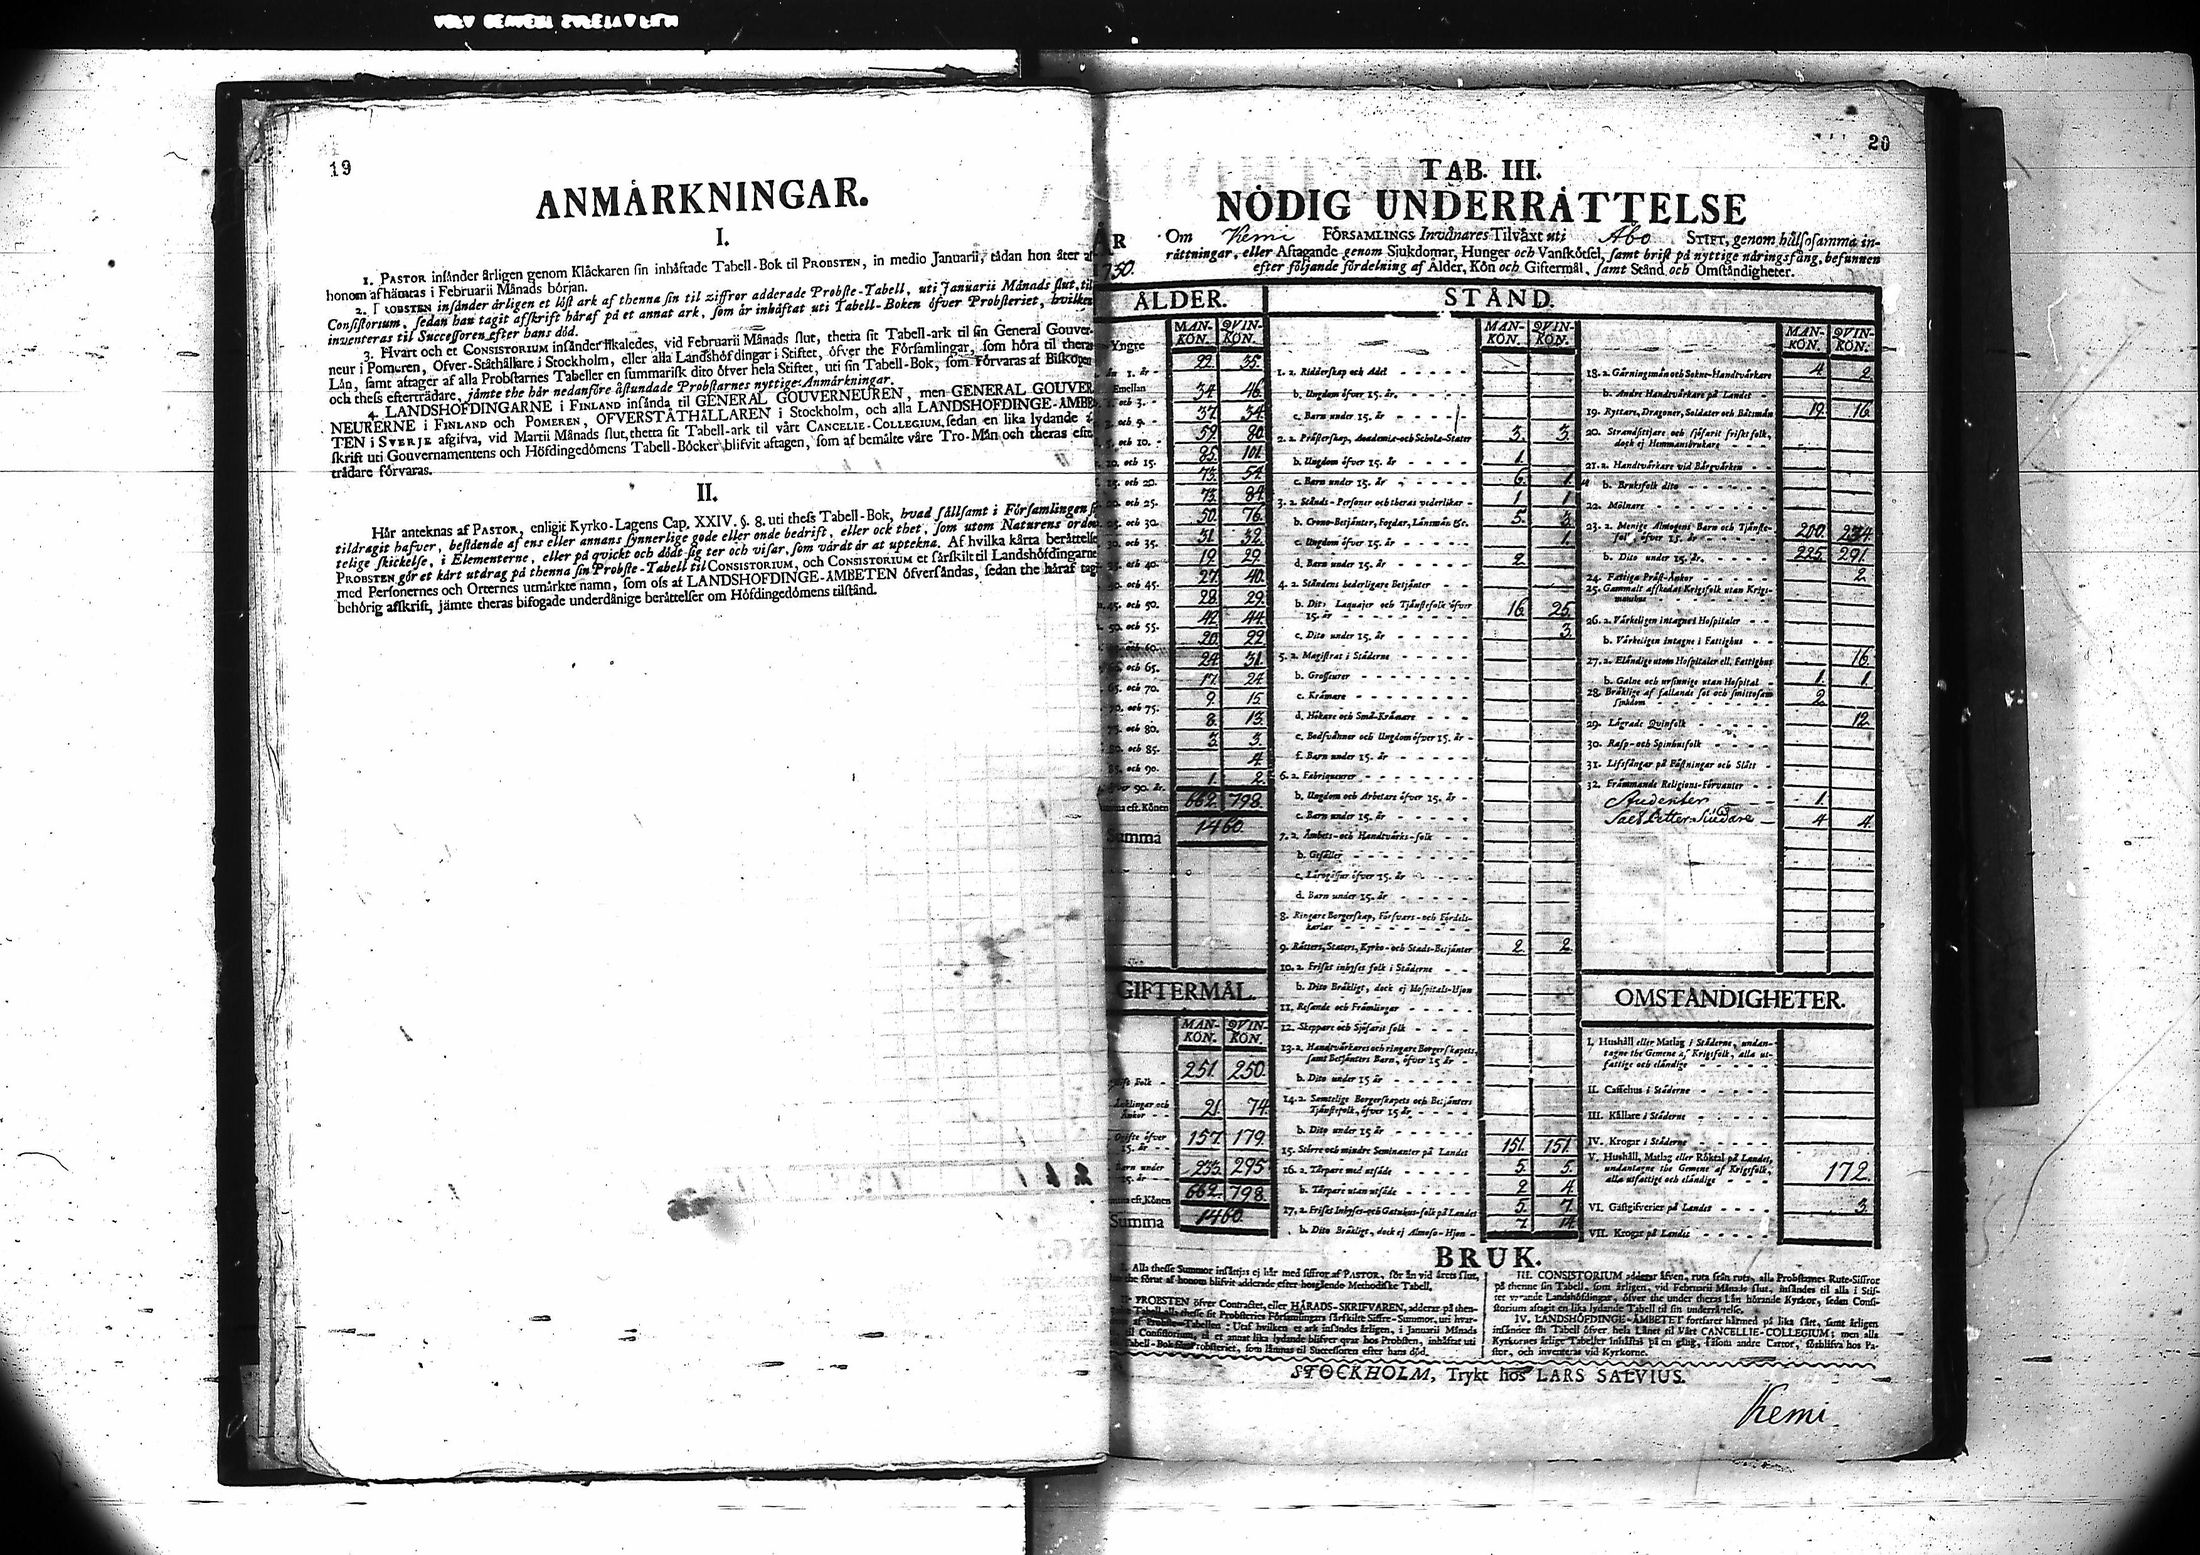 19
ANMÄRKNINGAR.
I.
1. PASTOR insänder årligen genom Klåckaren sin inhäftade Tabell-Bok til PROBSTEN, in medio Januarii, tädan hon åter af
honom afhämtas i Februarii Månads början.
2. PROBSTEN insänder årligen et löst ark af thenna sin til ziffror adderade Probste-Tabell, uti Januarii Månads slut, til
Consistorium, sedan han tagit afskrift häraf på et annat ark, som är inhäftat uti Tabell-Boken öfver Probsteriet, hvilken
inventeras til Successoren efter hans död.
3. Hvart och et CONSISTORIUM insänder likaledes, vid Februarii Månads slut, thetta sit Tabell-ark til sin General Gouver-
neur i Pomeren, Öfver-Ståthållare i Stockholm, eller alla Landshöfdingar i Stiftet, öfver the Församlingar, som höra til theras
Län, samt aftager af alla Probstarnes Tabeller en summarisk dito öfver hela Stiftet, uti sin Tabell-Bok, som förvaras af Biskopen
och thess efterträdare, jämte the här nedanföre åstundade Probstarnes nyttige Anmärkningar.
4. LANDSHÖFDINGARNE i FINLAND insända til GENERAL GOUVERNEUREN, men GENERAL GOUVER-
NEURERNE i FINLAND och POMEREN, ÖFVERSTÅTHÅLLAREN i Stockholm, och alla LANDSHÖFDINGE-ÄMBE-
TEN i SVERJE afgifva, vid Martii Månads slut, thetta sit Tabell-ark til vårt CANCELIE-COLLEGIUM, sedan en lika lydande
skrift uti Gouvernamentens och Höfdingedömens Tabell-Böcker blifvit aftagen, som af bemälte våre Tro-Män och theras efter
trädare förvaras.
II.
Här anteknas af PASTOR, enligit Kyrko-Lagens Cap. XXIV. §. 8. uti thess Tabell-Bok, hvad sällsamt i Församlingen
tildragit hafver, bestående af ens eller annans synnerlige gode eller onde bedrift, eller ock thet, som utom Naturens orden
telige skickelse, i Elementerne, eller på qvickt och dödt sig ter och visar, som värdt är at uptekna. Af hvilka kårta berättelse
PROBSTEN gör et kårt utdrag på thenna sin Probste-Tabell til CONSISTORIUM, och CONSISTORIUM et särskilt til Landshöfdingarne
med Personernes och Orternes utmärkte namn, som oss af LANDSHÖFDINGE-ÄMBETEN öfversändas, sedan the häraf tagi
behörig afskrift, jämte theras bifogade underdånige berättelser om Höfdingedömens tilstånd.
20
TAB. III.
NÖDIG UNDERRÄTTELSE
Om Kemi FÖRSAMLINGS Invånares Tilväxt uti Åbo STIFT, genom hälsosamma in-
rättningar, eller Aftagande genom Sjukdomar, Hunger och Vanskötsel, samt brist på nyttige näringsfång, befunnen
efter följande fördelning af Ålder, Kön och Giftermål, samt Stånd och Omständigheter.
ÅR
1750.
ÅLDER.
MAN-KÖN. QVIN-KÖN.
Yngre
än 1. år - 22. 35.
Emellan
1. och 3. - 34. 46.
37. 34.
5. och 10. - 59. 80.
10. och 15. 85. 101.
15. och 20. 73. 54.
20. och 25. 73. 84.
25. och 30. 50. 76.
30. och 35. 31. 32.
35. och 40. 19. 29.
40. och 45. 27. 40.
45. och 50. 28. 29.
50. och 55. 42. 44.
och 60. 20. 22.
och 65. 24. 31.
65. och 70. 17. 24.
70. och 75. 9. 15.
75. och 80. 8. 13.
80. och 85. 3. 3.
85. och 90. 4.
öfver 90. år. 1. 2.
Summa eft. Könen 662. 798.
Summa 1460.
GIFTERMÅL.
MAN-KÖN. QVIN-KÖN.
Gift Folk - 251. 250.
Änklingar och
Änkor - - 21. 74.
Ogifte öfver
15. år - - 157. 179.
Barn under
15. år - - 233. 295.
Summa eft. Könen 662. 798.
Summa 1460.
STÅND.
MAN-KÖN. QVIN-KÖN.
1. a. Ridderskap och Adel
b. Ungdom öfver 15. år.
c. Barn under 15. år
2. a. Prästerskap, Academiæ-och Schola-Stater 3. 3.
b. Ungdom öfver 15. år 1.
c. Barn under 15. år 6. 1.
3. a. Stånds-Personer och theras vederlikar - 1 1
b. Crono-Betjänter, Fogdar, Länsmän &c. 5. 3.
c. Ungdom öfver 15. år 1.
d. Barn under 15. år 2
4. a. Ståndens hederligare Betjänter
b. Dito Laquajer och Tjänstefolk öfver
15. år 16. 25.
c. Dito under 15. år 3.
5. a. Magistrat i Städerne
b. Grosseurer
c. Krämare
d. Hökare och Små-Krämare
e. Bodsvänner och Ungdom öfver 15. år -
f. Barn under 15. år
6. a. Fabriqueurer
b. Ungdom och Arbetare öfver 15. år -
c. Barn under 15. år
7. a. Ämbets-och Handtvärks-folk
b. Gesäller
c. Lärogåssar öfver 15. år
d. Barn under 15. år
8. Ringare Borgerskap, Försvars-och Fördels-
karlar
9. Rätters, Staters, Kyrko-och Stads-Betjänter 2. 2.
10. a. Friskt inhyses folk i Städerne
b. Dito Bräkligt, dock ej Hospitals-Hjon
11. Resande och Främlingar
12. Skeppare och Sjöfarit folk
13. a. Handtvärkares och ringare Borgerskapets,
samt Betjänters Barn, öfver 15 år
b. Dito under 15 år
14. a. Samtelige Borgerskapets och Betjänters
Tjänstefolk, öfver 15 år
b. Dito under 15 år
15. Större och mindre Seminanter på Landet 151. 151.
16. a. Tårpare med utsäde 5. 5.
b. Tårpare utan utsäde 2 4.
17. a. Friskt Inhyses-och Gatuhus-folk på Landet 5. 7.
b. Dito Bräkligt, dock ej Almoso-Hjon - 7 14.
MAN-KÖN. QVIN-KÖN.
18. a. Gärningsmän och Sokne-Handtvärkare 4 2.
b. Andre Handtvärkare på Landet
19. Ryttare, Dragoner, Soldater och Båtsmän 19. 16.
20. Strandsittjare och sjöfarit friskt folk,
dock ej Hemmansbrukare
21. a. Handtvärkare vid Bärgvärken
b. Bruksfolk dito
22. Mölnare
23. a. Menige Almogens Barn och Tjänste-
folk öfver 15. år 200. 234.
b. Dito under 15. år. 225. 291.
24. Fattiga Präst-Änkor 2.
25. Gammalt afskedat Krigsfolk utan Krigs-
manshus
26. a. Värkeligen intagne i Hospitaler
b. Värkeligen intagne i Fattighus
27. a. Eländige utom Hospitaler ell. Fattighus 16.
b. Galne och ursinnige utan Hospital 1. 1.
28. Bräklige af fallande sot och smittosam
sjukdom 2.
29. Lägrade Qvinfolk 12.
30. Rasp-och Spinhusfolk
31. Lifsfångar på Fästningar och Slått
32. Främmande Religions-Förvanter
Studenter 1.
4 4.
OMSTÄNDIGHETER.
I. Hushåll eller Matlag i Städerne, undan-
tagne the Gemene af Krigsfolk, alla ut-
fattige och eländige
II. Caffehus i Städerne
III. Källare i Städerne
IV. Krogar i Städerne
V. Hushåll, Matlag eller Röktal på Landet,
undantagne the Gemene af Krigsfolk,
alla utfattige och eländige 172.
VI. Gästgifverier på Landet 3.
VII. Krogar på Landet
BRUK.
Alla thesse Summor insättjas ej här med siffror af PASTOR, för än vid årets slut,
the förut af honom blifvit adderade efter hosgående Methodiske Tabell.
II. PROBSTEN öfver Contractet, eller HÄRADS-SKRIFVAREN, adderar på then-
Tabell alla thesse sit Probsteries Församlingars särskilte Siffre-Summor, uti hvar-
af Probste-Tabellen: Utaf hvilken et ark insändes årligen, i Januarii Månads
til Consistorium, et annat lika lydande blifver qvar hos Probsten, inhäftat uti
Tabell-Bok öfver Probsteriet, som lämnas til Successoren efter hans död.
III. CONSISTORIUM adderar äfven, ruta från ruta, alla Probstarnes Rute-Siffror
på thenne sin Tabell, som årligen, vid Februarii Månads slut, insändes til alla i Stif-
tet varande Landshöfdingar, öfver the under theras Län hörande Kyrkor, sedan Consi-
storium aftagit en lika lydande Tabell til sin underrättelse.
IV. LANDSHÖFDINGE-ÄMBETET fortfarer härmed på lika sätt, samt årligen
insänder sin Tabell öfver hela Länet til Vårt CANCELLIE-COLLEGIUM; men alla
Kyrkornes årlige Tabeller inhäftas på en gång, såsom andre Cartor, förblifva hos Pa-
stor, och inventeras vid Kyrkorne.
STOCKHOLM, Trykt hos LARS SALVIUS.
Kemi